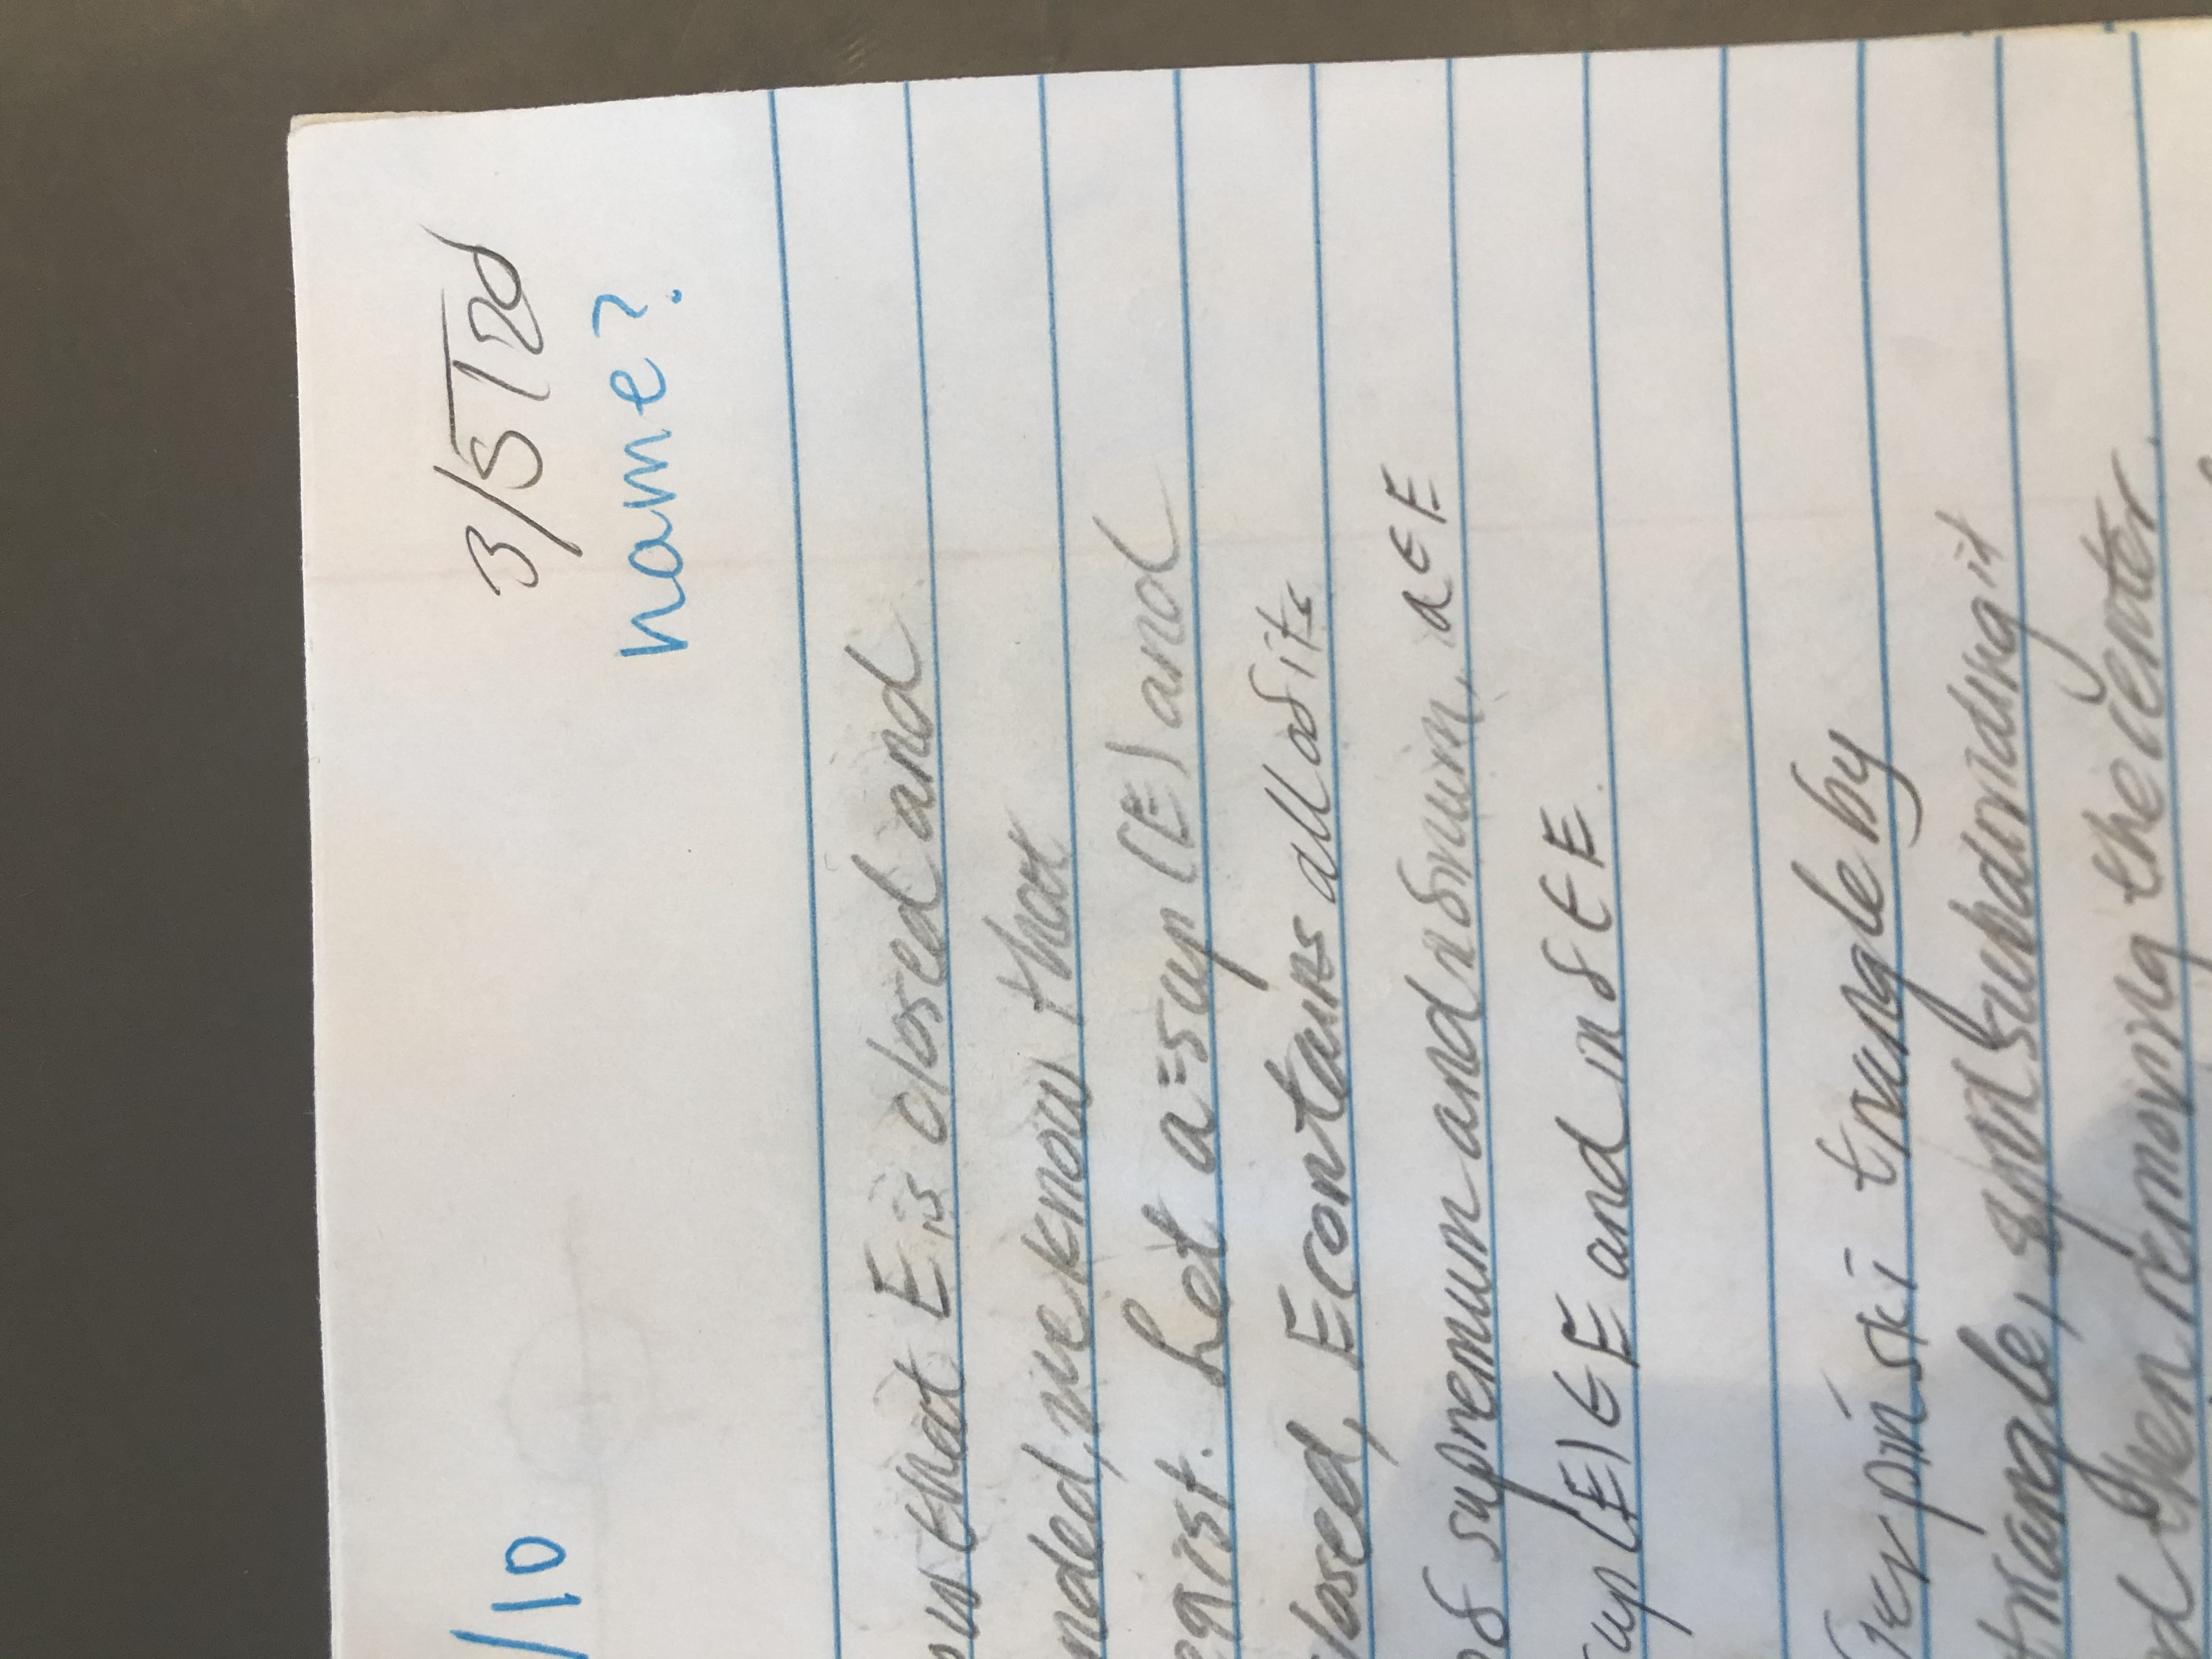 /10
3/5/20
name?
that E is closed and
nded, we know that
exist. Let a=sup(E) and
losed, E contains all of its
of supremum and infimum, a∈E
up(E)∈E and inf∈E.
ierpinski triangle by
triangle, subdividing it
then removing the center.